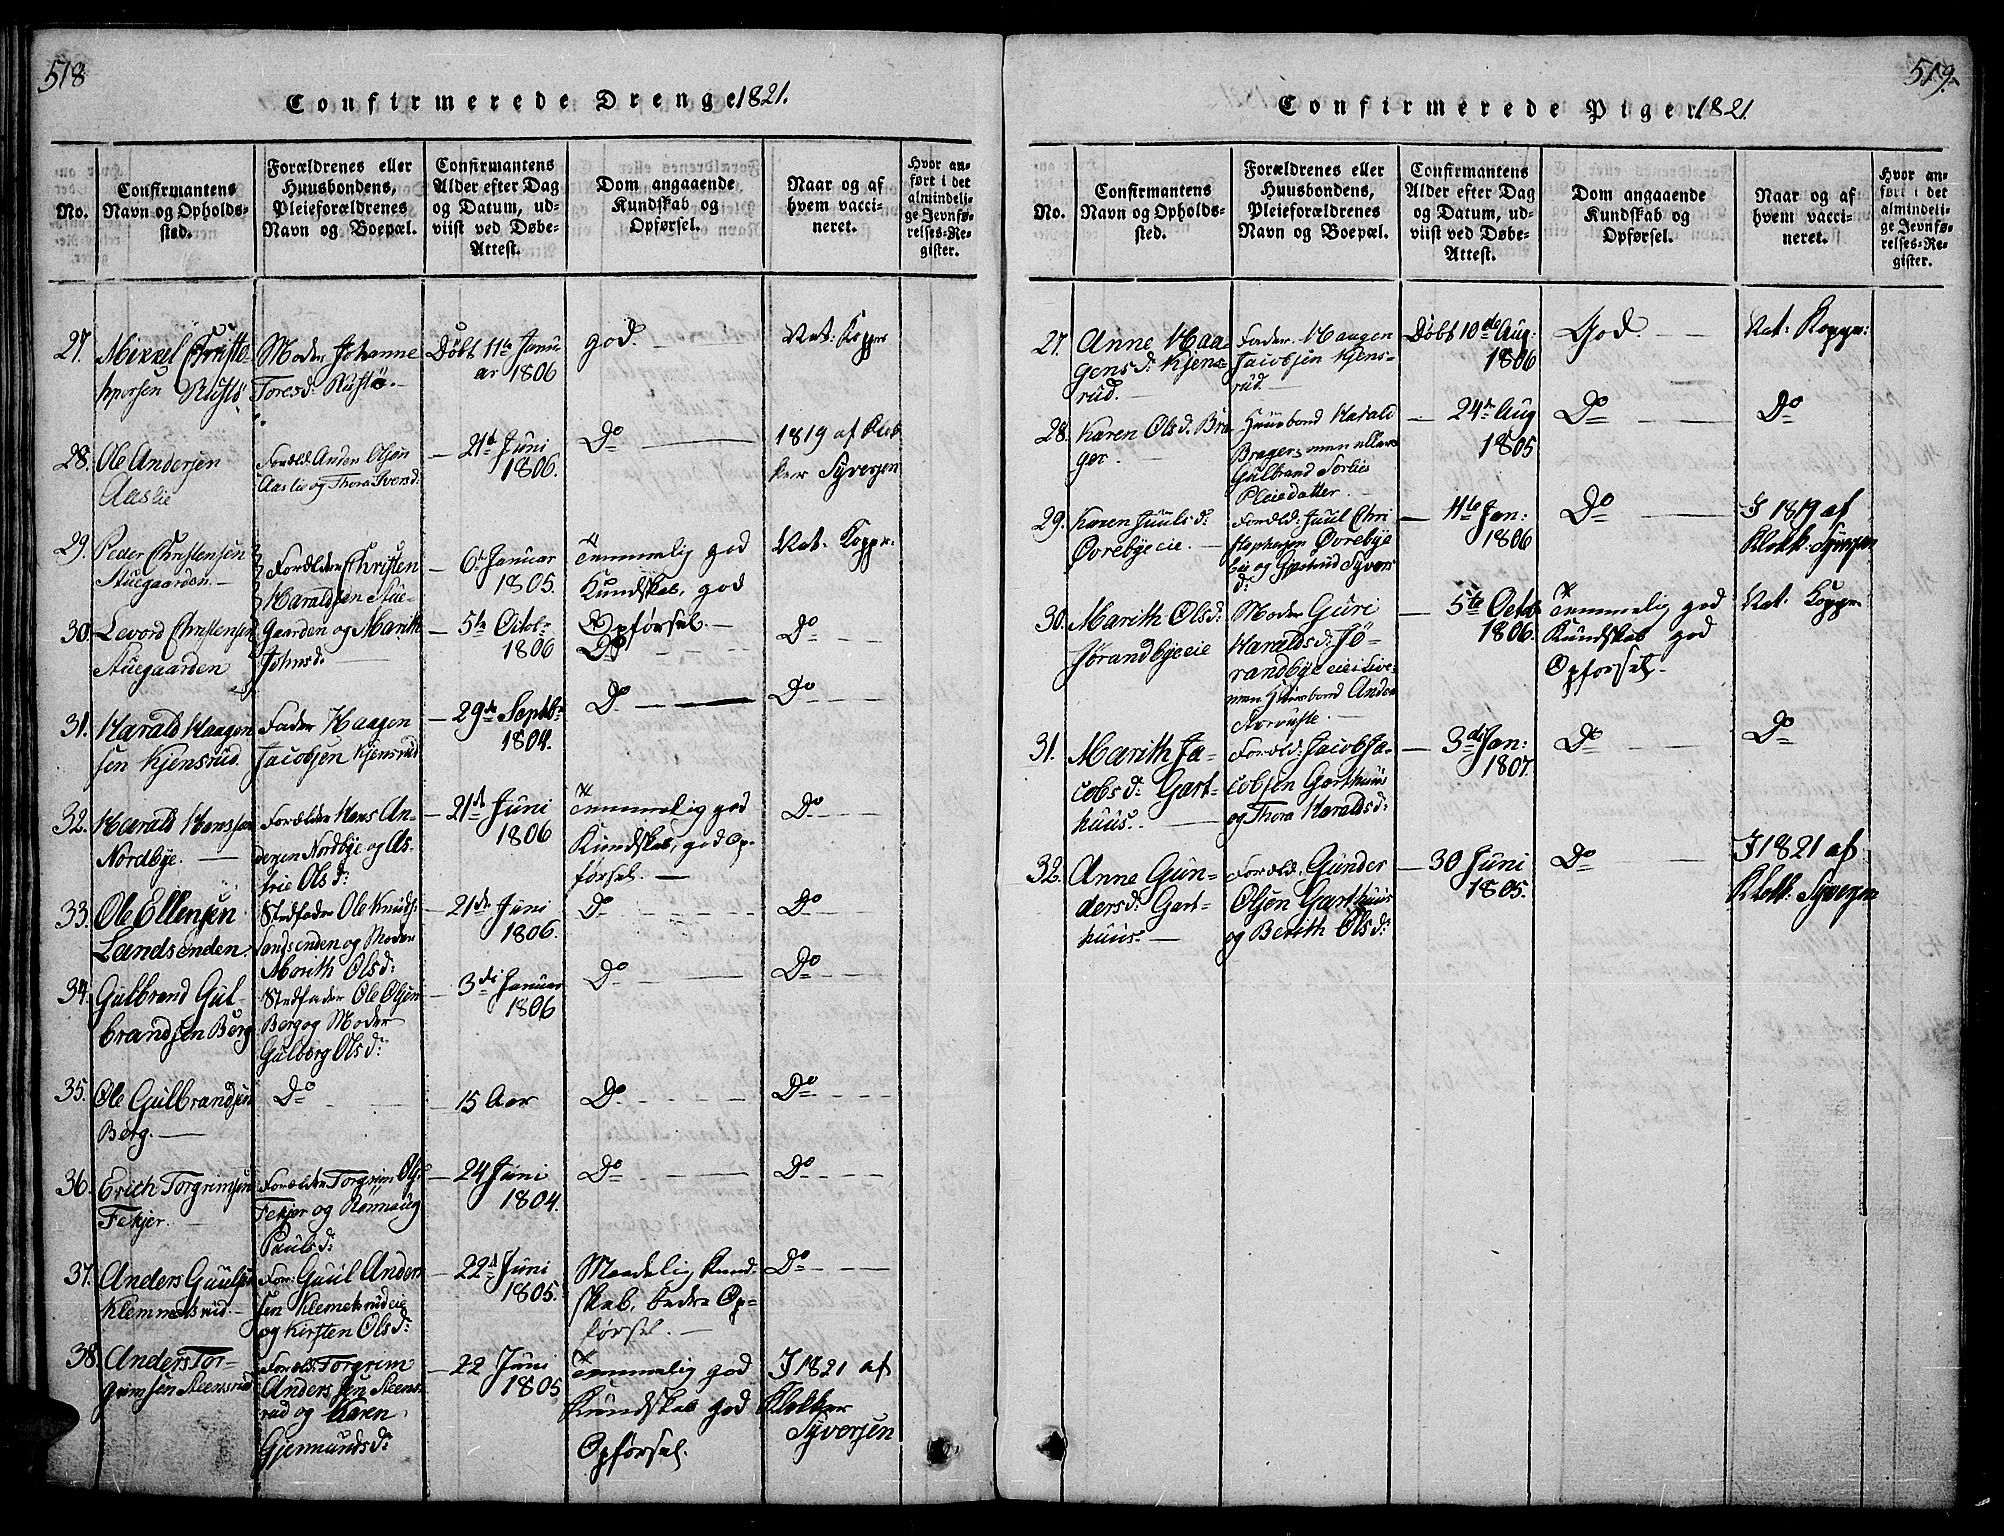 518
Confirmerede Drenge 1821.
No.
Confirmantens
Navn og Opholds-
sted.
Forældrenes eller
Huusbondens,
Pleieforældrenes
Navn og Boepæl.
Confirmantens
Alder efter Dag
og Datum, ud-
viist ved Døbe-
Attest.
Dom angaaende
Kundskab og
Opførsel.
Naar og af
hvem vacci-
neret.
Hvor an-
ført i det
almindeli-
ge Jevnfø-
relses-Re-
gister.
27.
Mikkel Christo
phersen Rustø
Moder Johanne
Toresd: Rustø
Døbt 11te Janu
ar 1806
god.
Nat: Kopper
28.
Ole Andersen
Aaslie
Foræld: Anders Olsen
Aaslie og Thora Iversd:
21de Juni
1806.
Do
1819 af Klok
ker Syversen
29.
Peder Christensen
Stuegaarden.
Forældre Christen
Haraldsen Stue-
gaarden og Marith
Johnsd:
6te Januar
1805.
Temmelig god
Kundskab, god
Opførsel.
Nat: Kopper:
30.
Levord Christensen
Stuegaarden
5te Octobr
1806
Do
Do
31.
Harald Haagen
sen Kjensrud
Fader Haagen
Jacobsen Kjensrud
29de Septbr
1804.
Do
Do
32.
Harald Hanssen
Nordbye.
Forældre Hans An-
dersen Nordbye og As-
trie Olsd:
21de Juni
1806
Temmelig god
Kundskab, god Op-
førsel.
Do
33.
Ole Ellensen
Landsenden.
Stedfader Ole Knuds:
Landsenden og Moder
Marith Olsd:
21de Juni
1806.
Do
Do
34.
Gulbrand Gul-
brandsen Berg
Stedfader Ole Olsen
Berg og Moder
Gulborg Olsd:
3die Januar
1806
Do
Do
35.
Ole Gulbrandsen
Berg.
Do
15 Aar
Do
Do
36.
Erich Torgrimsen
Fekjer.
Forældre Torgrim Ols:
Fekjer og Rønnaug
Paulsd:
24 Juni
1804.
Do
Do
37.
Anders Guulsen
Klemmetsrud.
For: Guul Anders
sen Klemetsrudeie
og Kirsten Olsd:
22de Juni
1805.
Maadelig Kund-
skab, bedre Op-
førsel.
Do
38.
Anders Tor-
grimsen Steensrud
Foræld: Torgrim
Anderssen Steens-
rud og Karen
Gjermundsd:
22 Juni
1805
Temmelig god
Kundskab god
Opførsel.
I 1821 af
Klokker
Syversen
519.
Confirmerede Piger 1821
No.
Confirmantens
Navn og Opholds-
sted.
Forældrenes eller
Huusbondens,
Pleieforældrenes
Navn og Boepæl.
Confirmantens
Alder efter Dag
og Datum, ud-
viist ved Døbe-
Attest.
Dom angaaende
Kundskab og
Opførsel.
Naar og af
hvem vacci-
neret.
Hvor an-
ført i det
almindeli-
ge Jevnfø-
relses-Re-
gister.
27.
Anne Haa-
gensd: Kjens-
rud.
Fader Haagen
Jacobsen Kjens-
rud.
Døbt 10de Aug:
1806
God.
Nat: Kopper:
28.
Karen Olsd: Bra
ger.
Huusbond Harald
Brager, men ellers
Gulbrand Sørlies
Pleiedatter.
24de Aug
1805
Do
Do
29.
Karen Juulsd:
Øvrebyeeie.
Foræld: Juul Chri
stophersen Øvrebye
eie og Gjertrud Syvers
d:
11te Jan:
1806
Do
I 1819 af
Klokk: Syversen
30.
Marith Olsd:
Jørandbyeeie
Moder Guri
Haraldsd: Jø-
randbyeeie
men Huusbond Anders
5te Octob
1806.
Temmelig god
Kundskab god
Opførsel.
Nat: Kopper
31.
Marith Ja-
cobsd: Gart-
huus.
Foræld: Jacob Ja-
cobsen Garthuus
og Thora Haraldsd:
3die Jan:
1807.
Do
Do
32.
Anne Gun-
dersd: Gart-
huus.
Foræld: Gunder
Olsen Garthuus
og Berith Olsd:
30 Juni
1805.
Do
I 1821 af
Klokk: Syversen